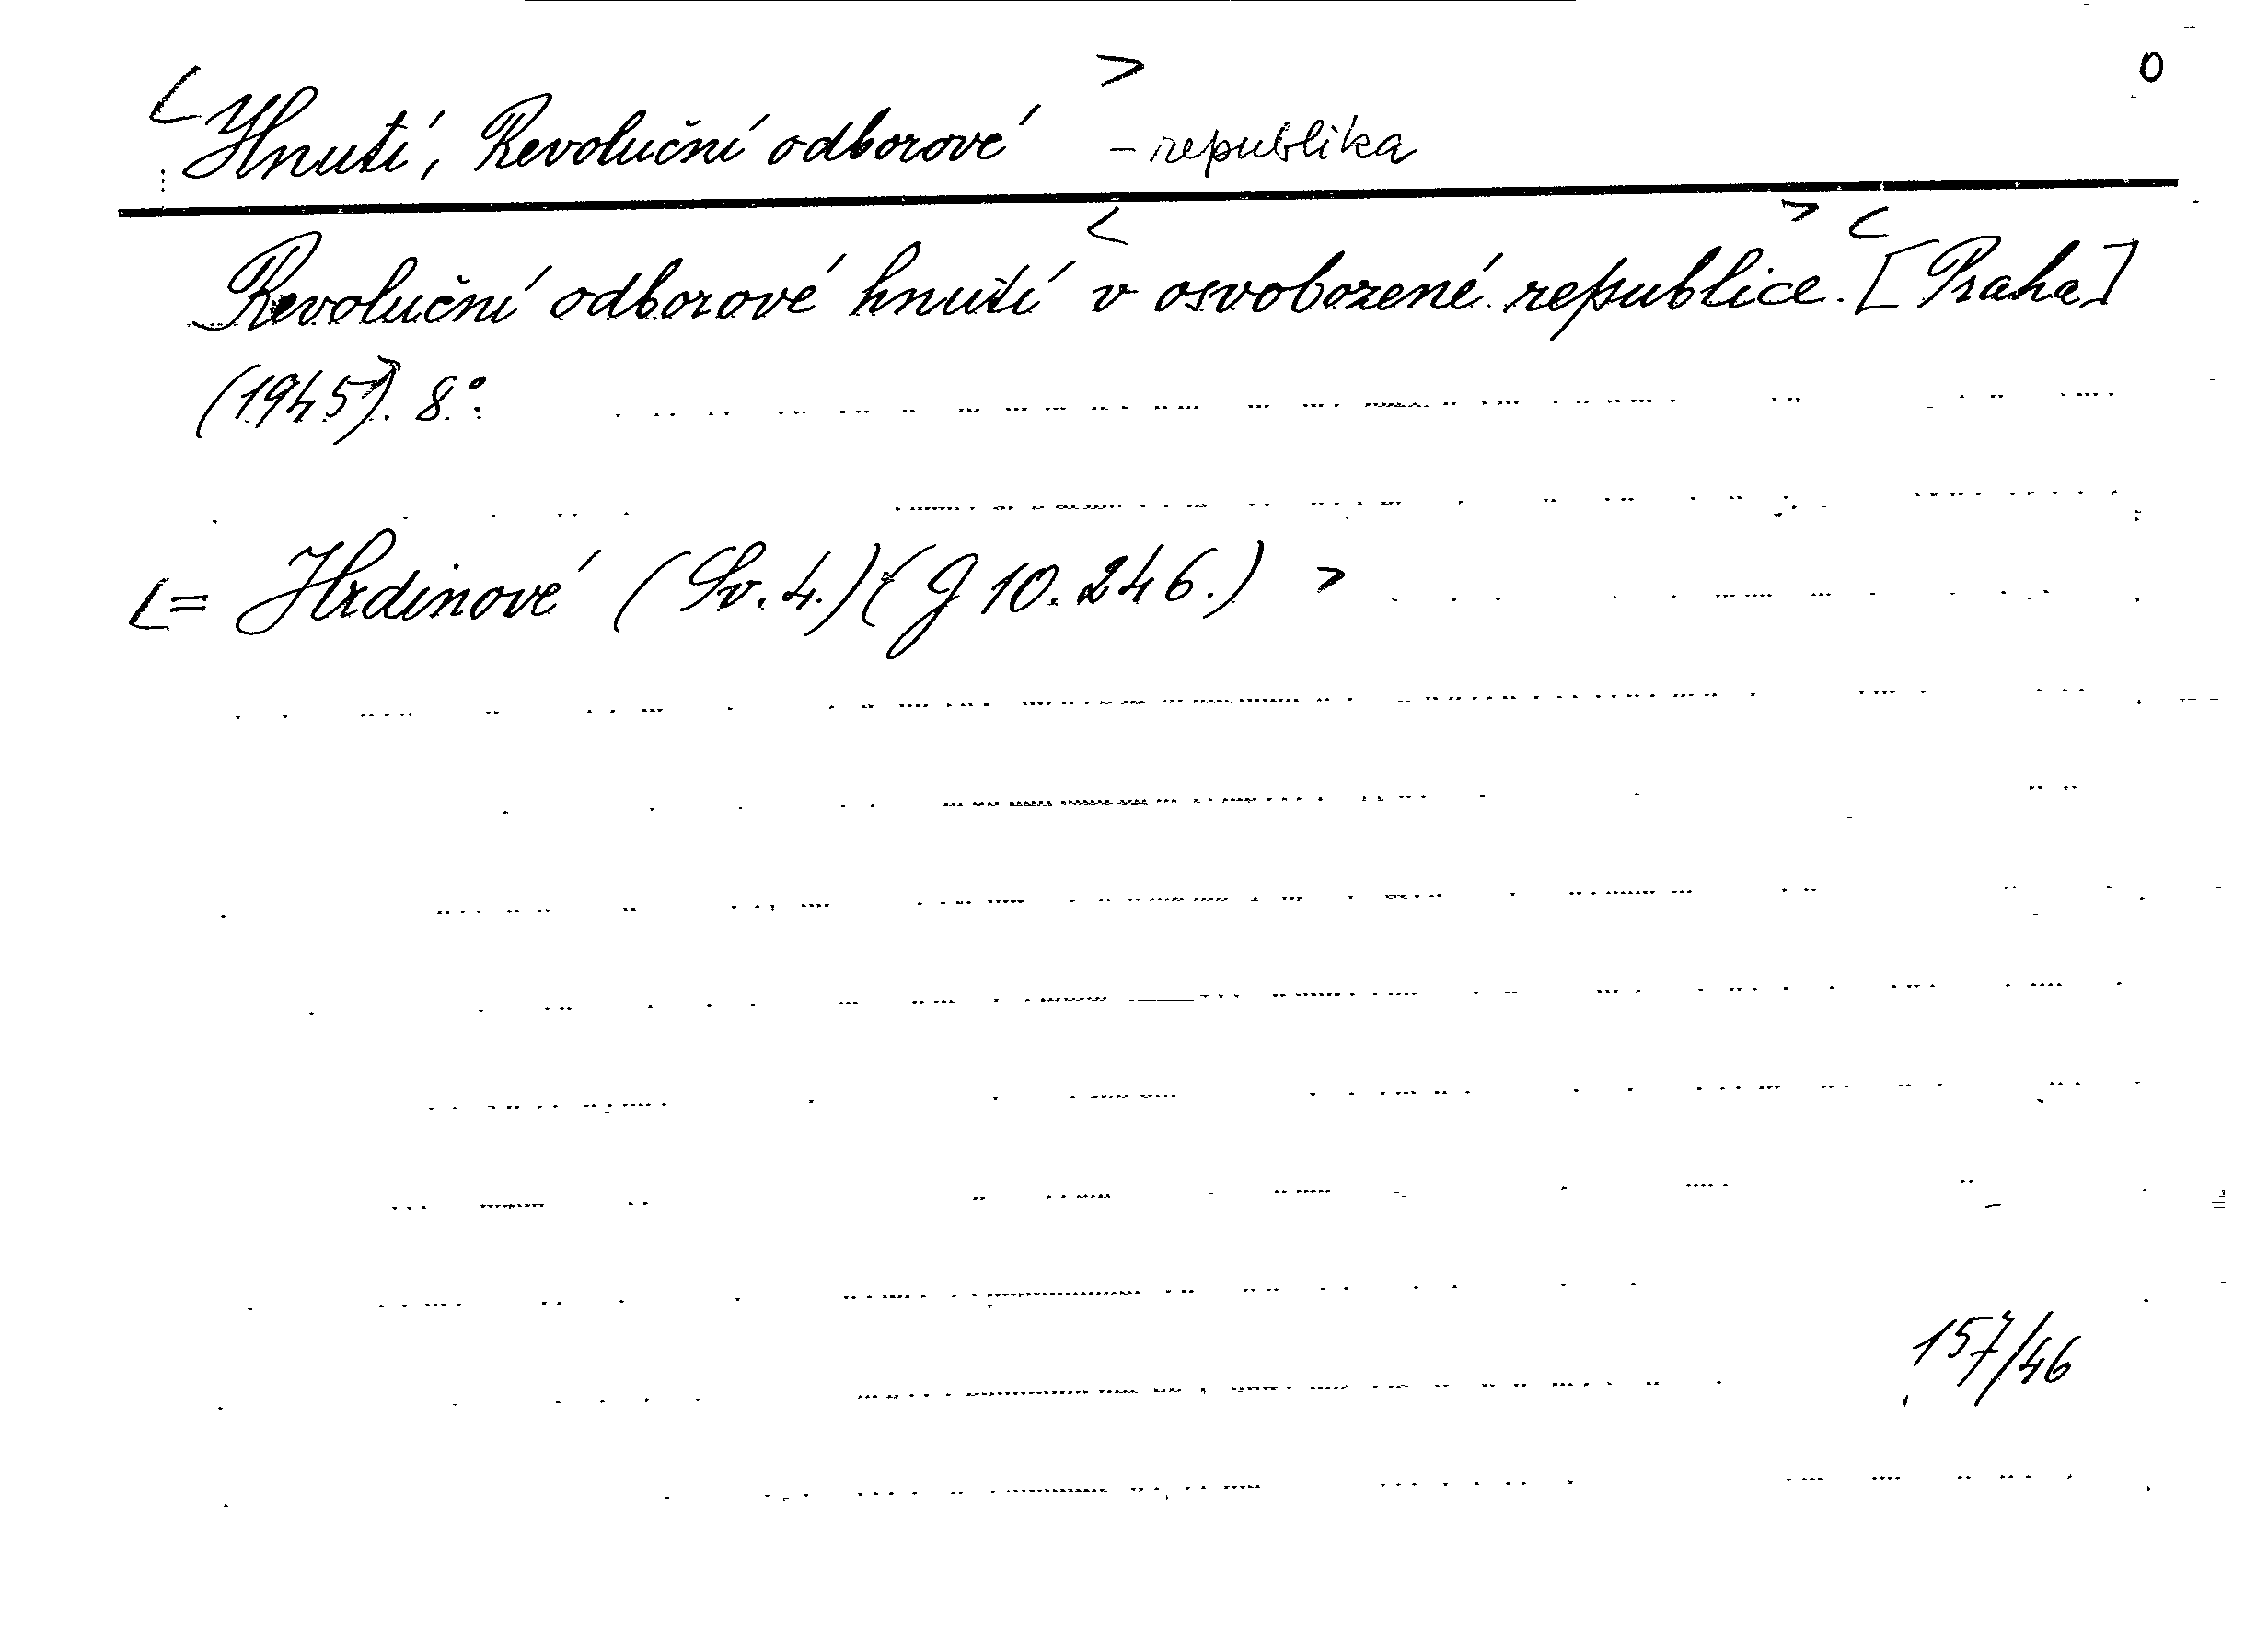 <Hnutí, Revoluční odborové> – republika 0
Revoluční odborové hnutí <v osvobozené republice.> <[Praha]
(1945)>. 8°.
<= Hrdinové (Sv. 4.) (J 10.246.) >
157/46